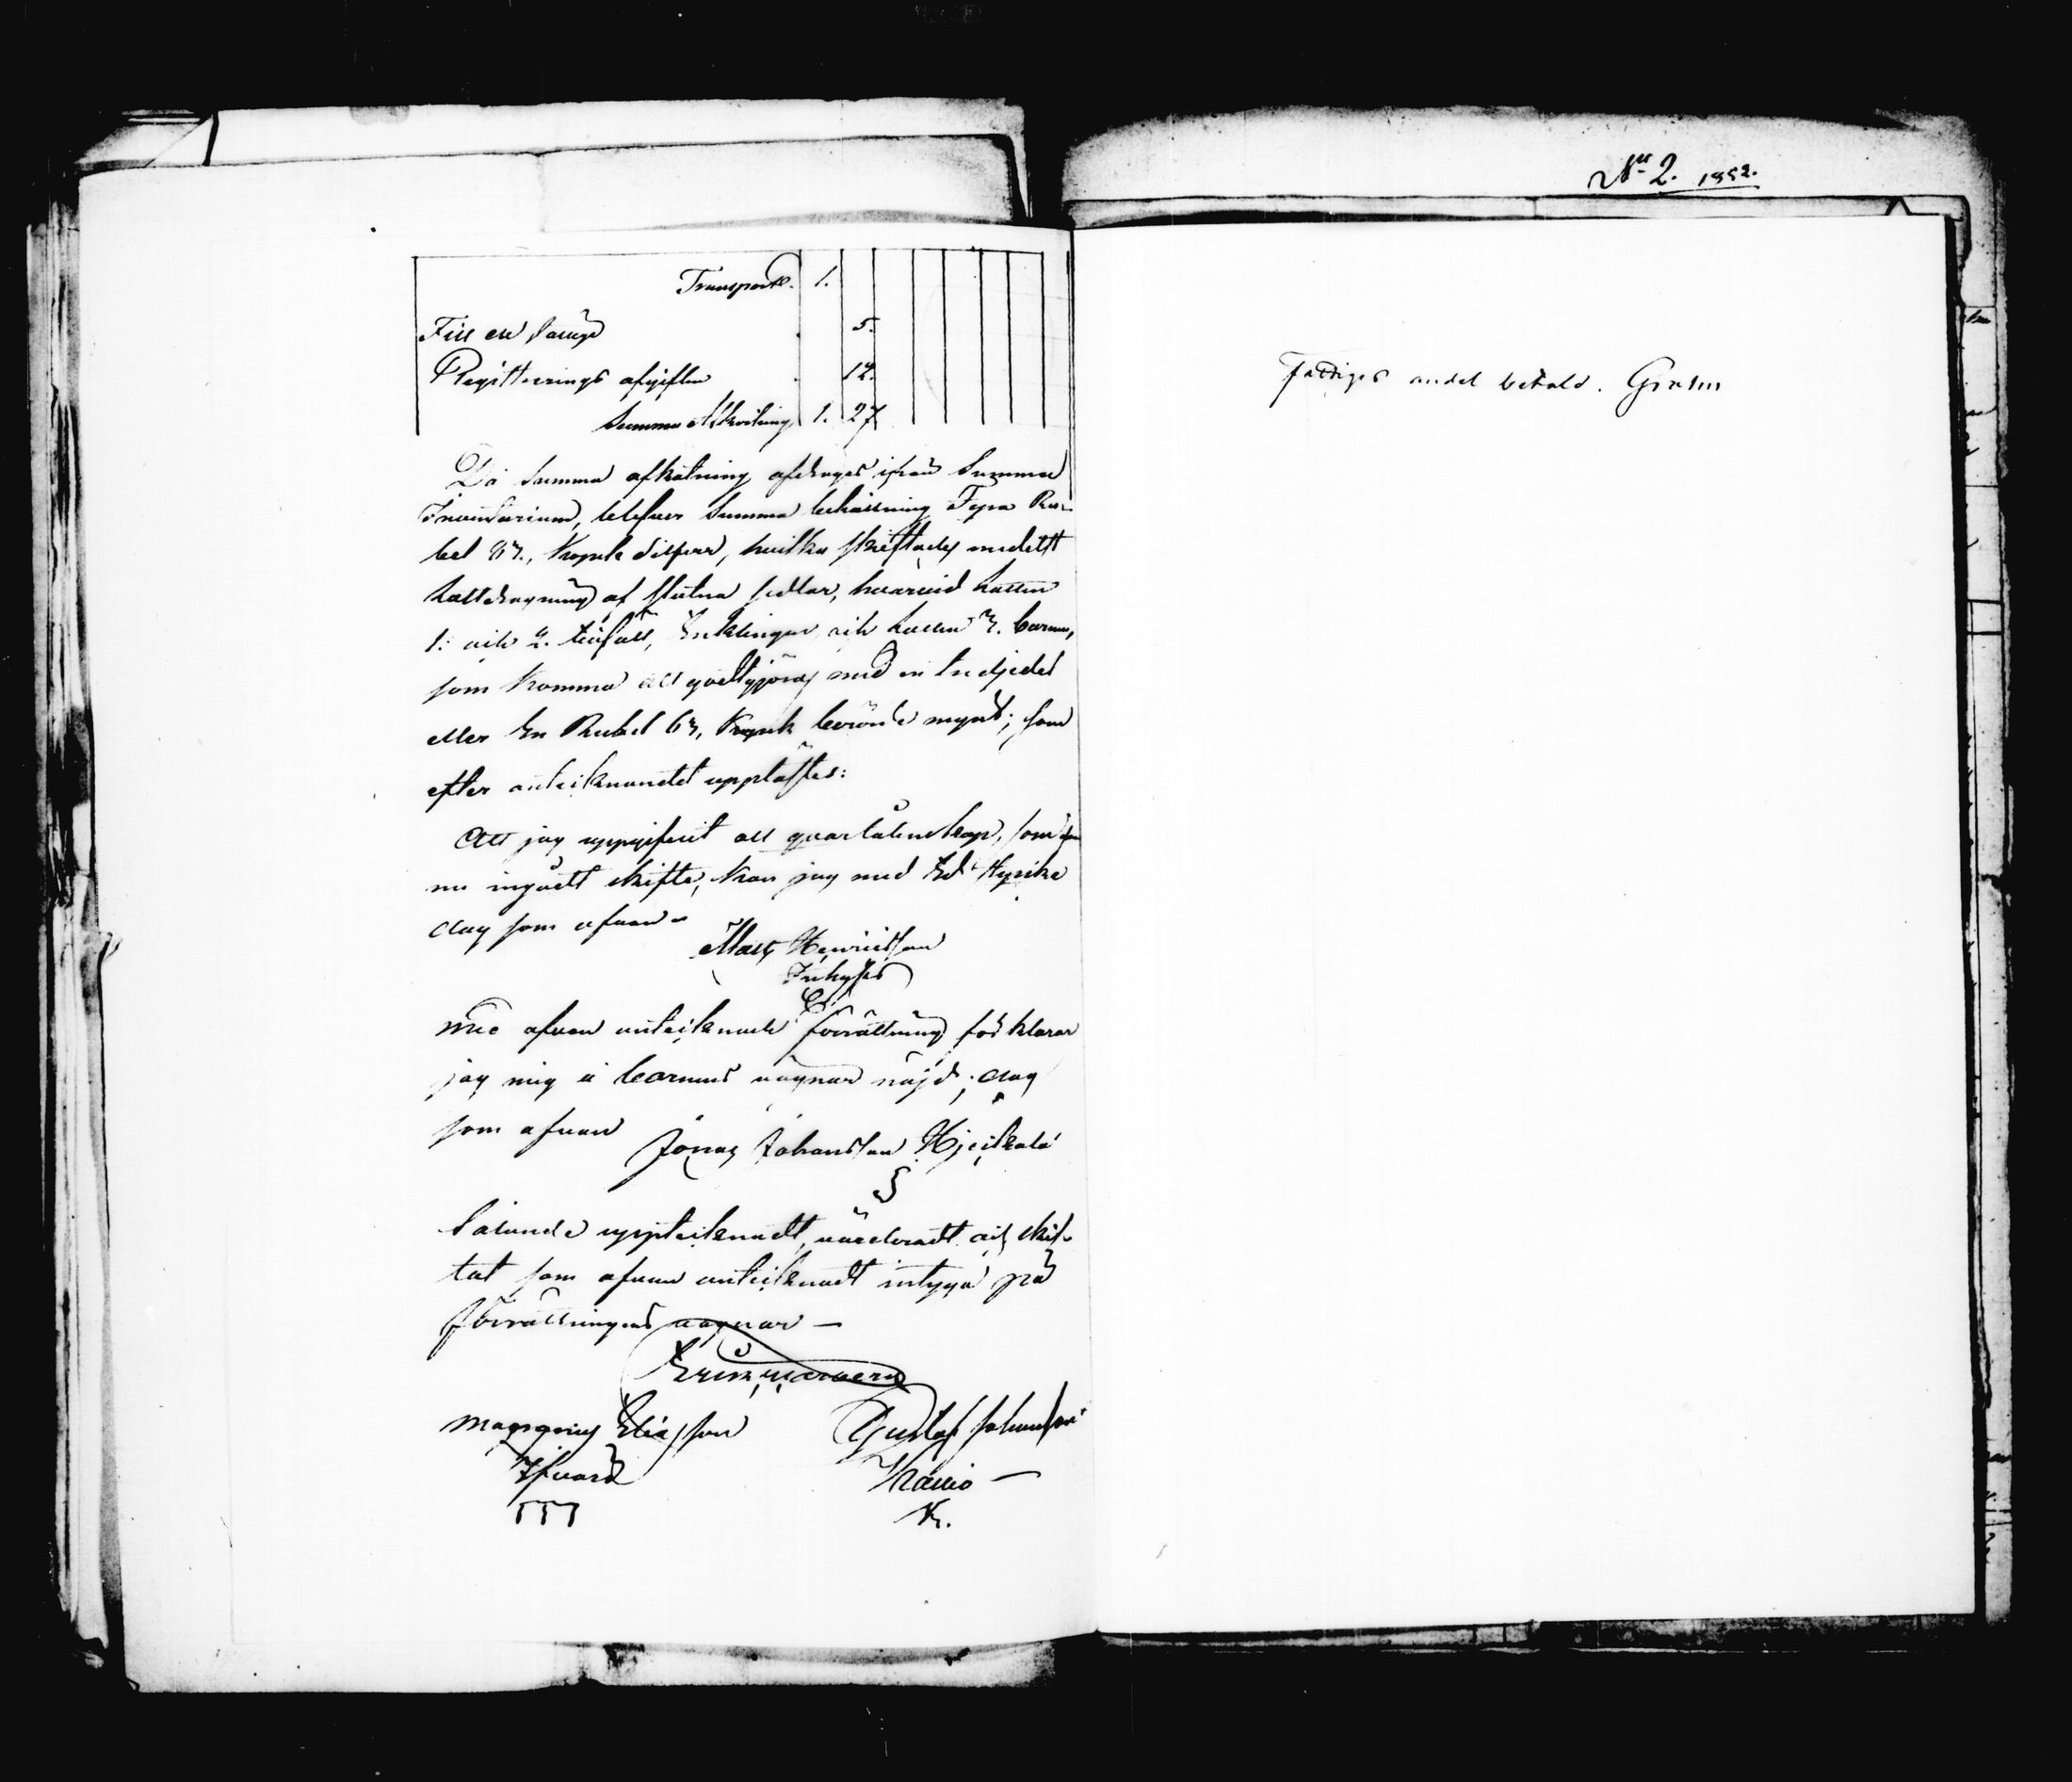 No 2. 1852.
Transport. 1.
5.
Registrerings afgiften 12.
Summa Afkortning 1. 27
Då Summa afkortning afdrages ifrån Summa
Inventarium, blefver Summa behållning Fyra Ru-
bel 87, Kopek Silfver, hvilka skiftades medelst
lottdragning af slutna sedlar, hvarvid lotten
1: och 2. tillföll, Enklingen och lotten 3. barnen,
som komma att godtgjöras med en tredjedel
eller En Rubel 63, Kopek berörde mynt; som
efter anteiknandet upplästes:
Att jag uppgifvit all qvarlåtenskap, som
nu ingått skifte, kan jag med Ed styrka
dag som ofvan
Matts Henricsson
Med ofvan anteiknade förrättning förklarar
jag mig å barnens vägnar nöjd; dag
som ofvan
Jonas Johansson
Sålunde uppteiknadt, värderadt och skif-
tat som ofvan anteiknadt intyga på
förrättningens vägnar —
Magnus Eliasson Gustaf Johansson
Ifvars
K.
Fattiges andel betald.